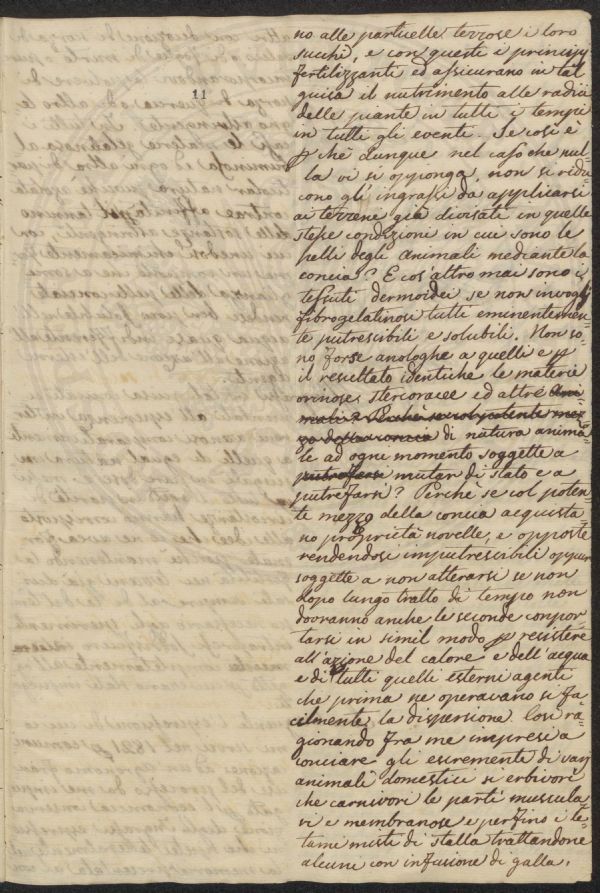 11
no alle particelle terrose i loro
succhi, e con questi i principj
fertilizzanti ed assicurano in tal
guisa il nutrimento alle radici
delle piante in tutti i tempi
in tutti gli eventi. Se così è
p chè dunque nel caso che nul-
la vi si opponga, non si ridu
cono gl'ingrassi da applicarsi
ai terreni già divisati in quelle
stesse condizioni in cui sono le
pelli degli animali mediante la
concia? E cos'altro mai sono i
tessuti dermoidei se non invogli
fibrogelatinosi tutti eminentemen
te putrescibili e solubili. Non so-
no forse anologhe a quelli e p
il resultato identiche le materie
orinose, stercoracee ed altre ani
mali? Perchè se col potente mez
zo della concia di natura anima
le ad ogni momento soggette a
putrefarsi mutar di stato e a
putrefarsi? Perchè se col poten-
te mezzo della concia acquista
no proprietà novelle, e opposte
rendendosi imputrescibili oppure
soggette a non alterarsi se non
dopo lungo tratto di tempo non
dovranno anche le seconde compor-
tarsi in simil modo p resistere
all'azione del calore e dell'acqua
e di tutti quelli esterni agenti
che prima ne operavano sì fa-
cilmente la dispersione. Così ra-
gionando fra me impresi a
conciare gli escrementi di varj
animali domestici sì erbivori
che carnivori le parti muscula
ri e membranose e perfino i le-
tami misti di stalla trattandone
alcuni con infusione di galla,